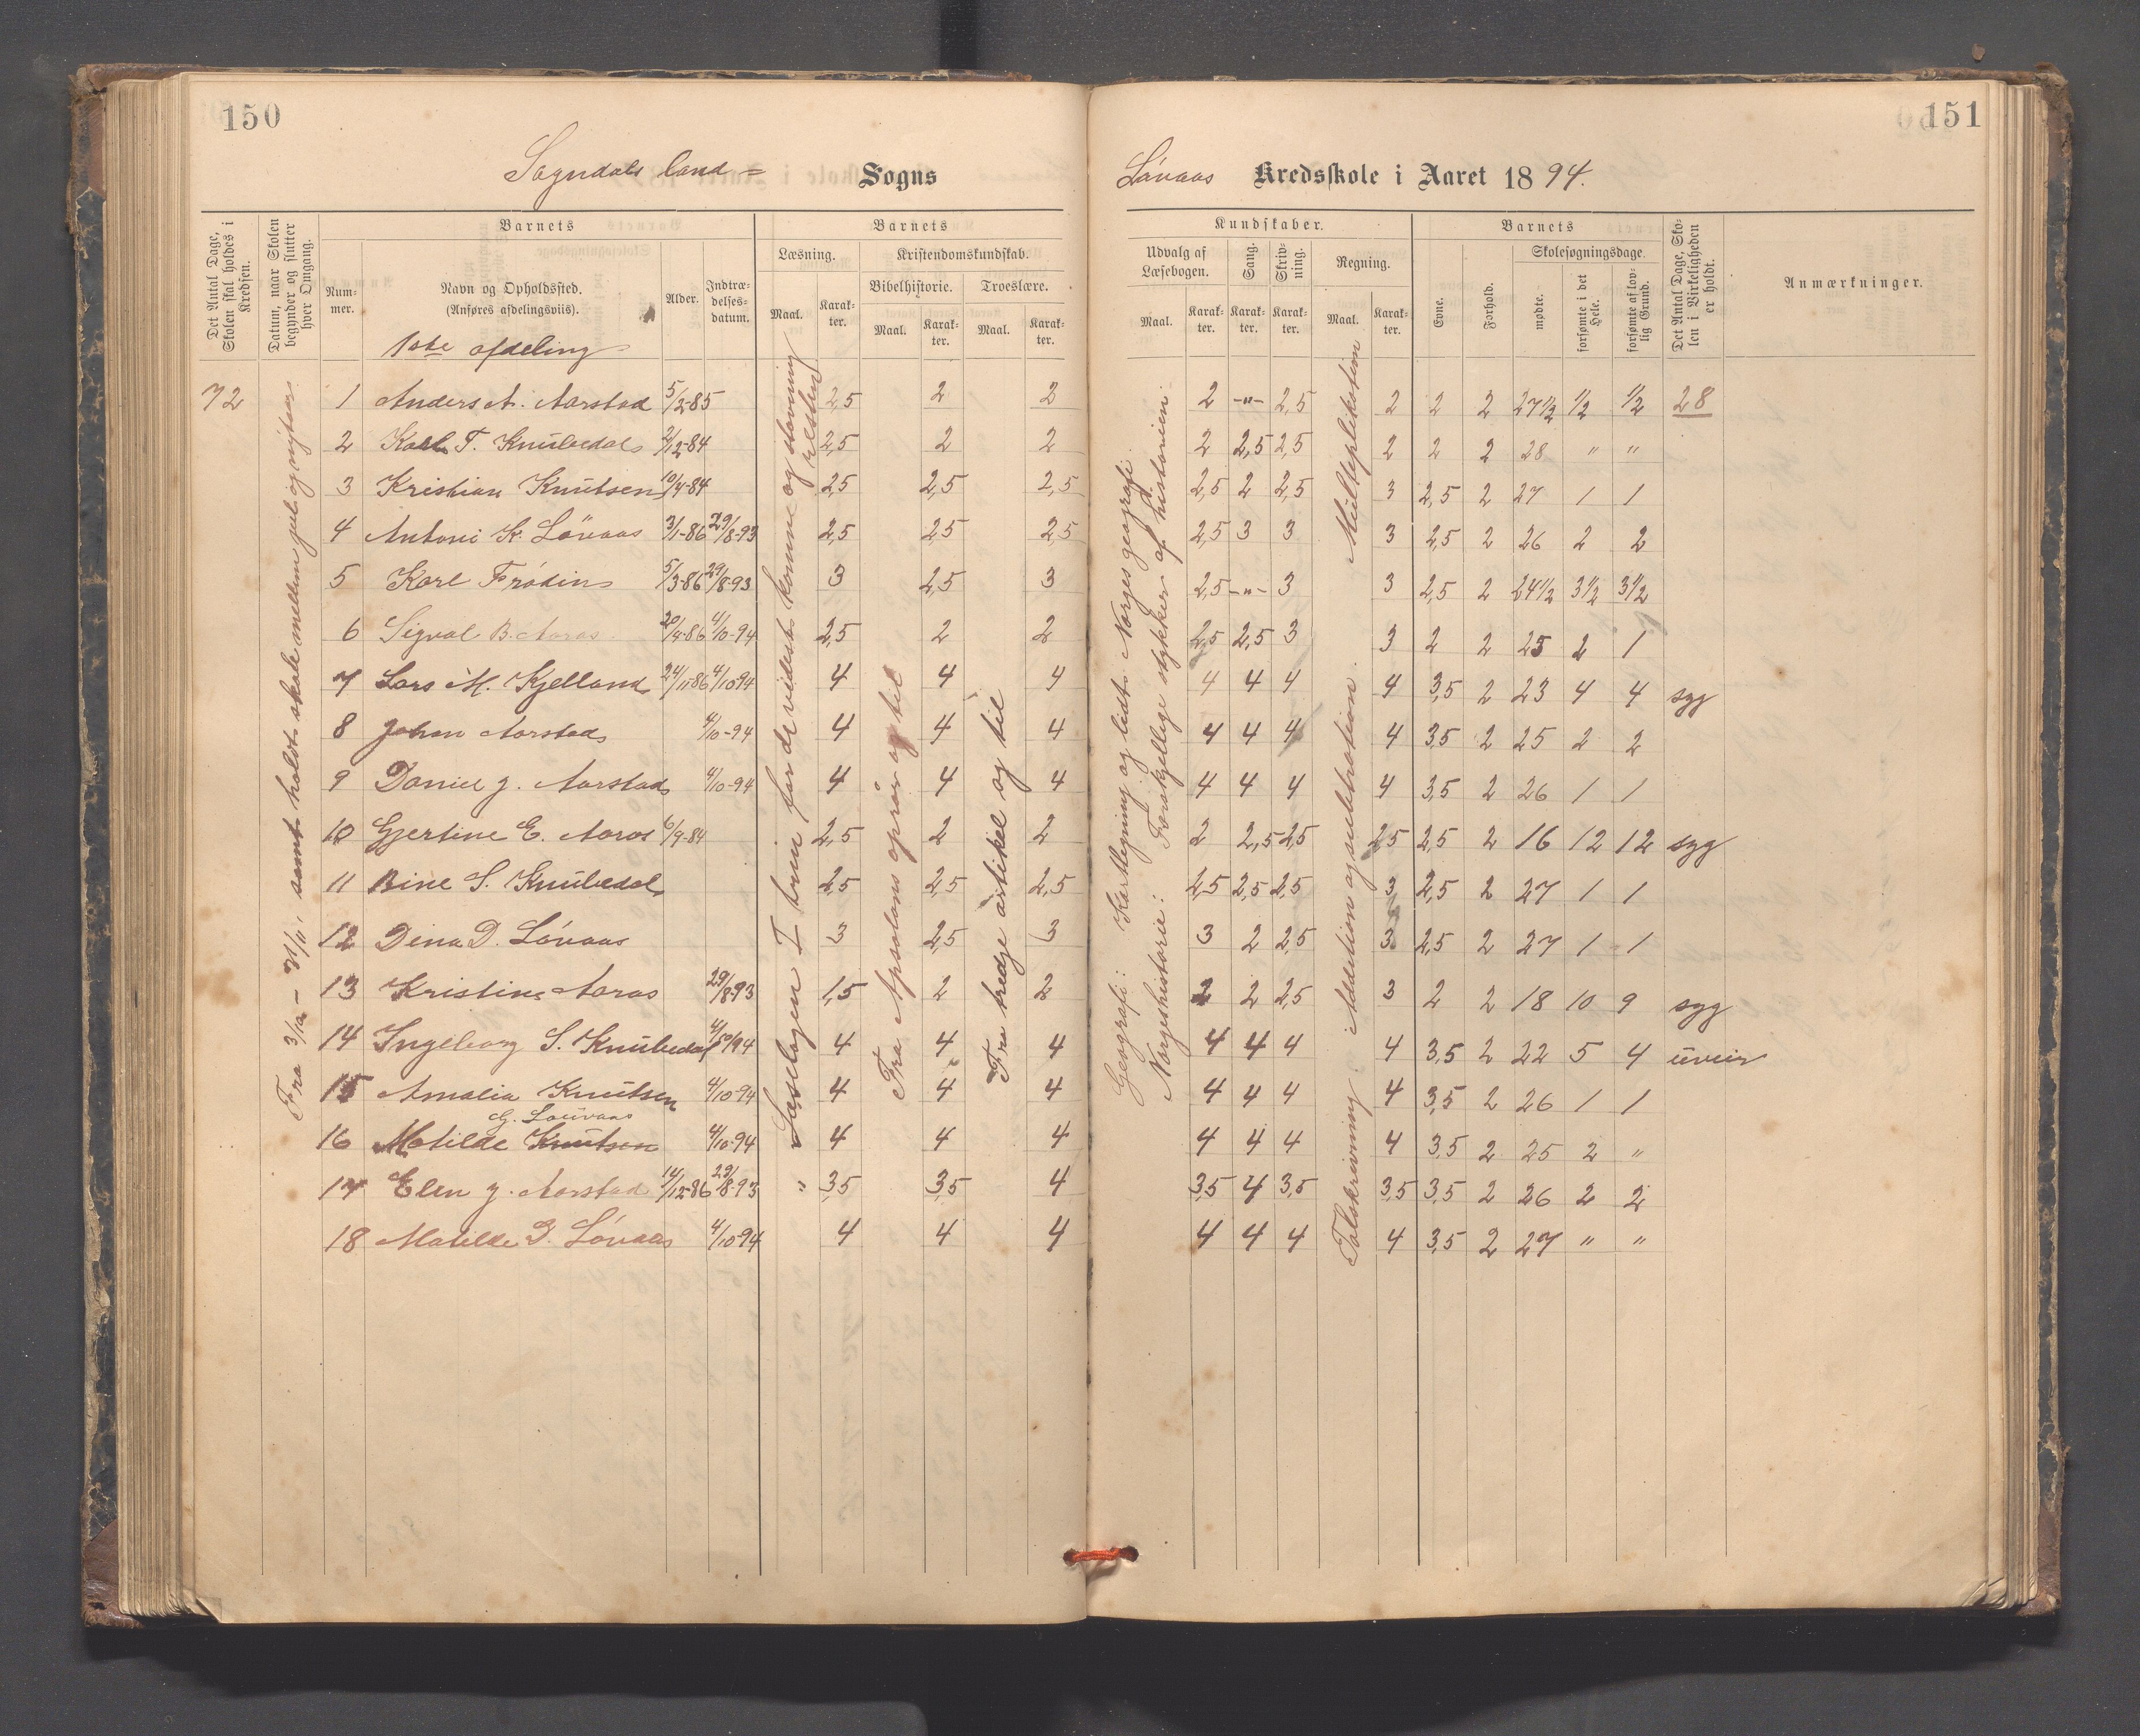 150
Sogndals land = Sogns
Det Antal Dage, Skolen skal holdes i Kredsen.
Datum, naar Skolen begynder og slutter hver Omgang.
Barnets
Barnets
Num-mer.
Navn og Opholdssted. (Anføres afdelingsviis).
Alder.
Indtræ-delses-datum.
Læsning.
Kristendomskundskab.
Bibelhistorie.
Troeslære.
Maal. Karak-ter. Maal. Karak-ter. Maal. Karak-ter.
1ste afdeling
72
Fra 3/10 - 21/11, samt holdt skole mellem jul og nytaar
1 Anders A. Aarstad 5/2-85 2,5 2 2
2 Karl T. Knubedal 2/12-84 2,5 2 2
3 Kristian Knutsen 10/4-84 2,5 2,5 2,5
4 Antoni K. Løvaas 3/1-86 29/8-93 2,5 2,5 2,5
5 Karl Frødin 5/3-86 29/8-93 3 2,5 3
6 Sigval B. Aaros 20/4-86 4/10-94 2,5 2 2
7 Lars M. Kjelland 24/11-86 4/10-94 4 4 4
8 Johan Aarstad 4/10-94 4 4 4
9 Daniel J. Aarstad 4/10-94 4 4 4
10 Gjertine E. Aaros 6/9-84 2,5 2 2
11 Bine S. Knubedal 2,5 2,5 2,5
12 Dina D. Løvaas 3 2,5 3
13 Kristine Aaros 29/8-93 1,5 2 2
14 Ingeborg S. Knubedal 4/10/94 4 4 4
15 Amalia Knutsen 4/10-94 4 4 4
G. Løuvaas
16 Matilde Knutsen 4/10-94 4 4 4
17 Elen J. Aarstad 14/12-86 29/8-93 " 3,5 3,5 4
18 Matilde G. Løvaas 4/10-94 4 4 4
Læsebogen I trin for de videst komne og stavning resten
Fra Apsalons oprør og til
Fra tredje artikel og til
151
Løvaas Kredsskole i Aaret 1894.
Kundskaber.
Barnets
Udvalg af Læsebogen.
Sang.
Skriv-ning.
Regning.
Evne.
Forhold.
Skolesøgningsdage.
mødte.
forsømte i det Hele.
forsømte af lov-lig Grund.
Det Antal Dage, Sko-len i Virkeligheden er holdt.
Anmærkninger.
Maal. Karak-ter. Karak-ter. Karak-ter. Maal. Karak-ter.
Geografi: Kartlegning og lidt Norges geografi.
Norgeshistorie: Forskjellige stykker af historien
Talskrivning. Addition og subtraktion. Multiplikation
2 -"- 2,5 2 2 2 27 1/2 1/2 1/2 28
2 2,5 2,5 2 2 2 28 " "
2,5 2 2,5 3 2,5 2 27 1 1
2,5 3 3 3 2,5 2 26 2 2
2,5 -"- 3 3 2,5 2 24 1/2 3 1/2 3 1/2
2,5 2,5 3 3 2 2 25 2 1
4 4 4 4 3,5 2 23 4 4 syg
4 4 4 4 3,5 2 25 2 2
4 4 4 4 3,5 2 26 1 1
2 2,5 2,5 2,5 2,5 2 16 12 12 syg
2,5 2,5 2,5 3 2,5 2 27 1 1
3 2 2,5 3 2,5 2 27 1 1
2 2 2,5 3 2 2 18 10 9 syg
4 4 4 4 3,5 2 22 5 4 uveir
4 4 4 4 3,5 2 26 1 1
4 4 4 4 3,5 2 25 2 "
3,5 4 3,5 3,5 3,5 2 26 2 2
4 4 4 4 3,5 2 27 " "